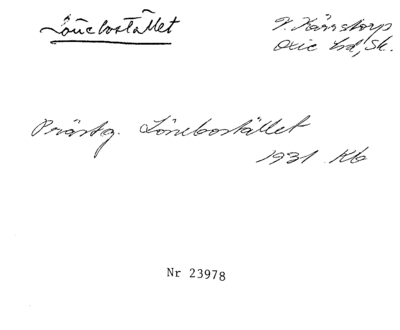 Lönebostället
V. Kärrstorp
Oxie hd, Sk.
Prästg. Lönebostället
1931 Kb
Nr 23978